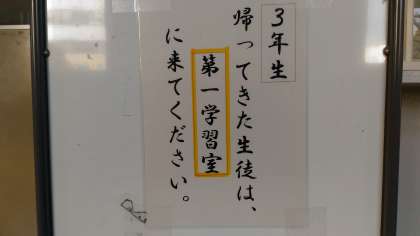 3年生
帰ってきた生徒は、
第一学習室
に来てください。